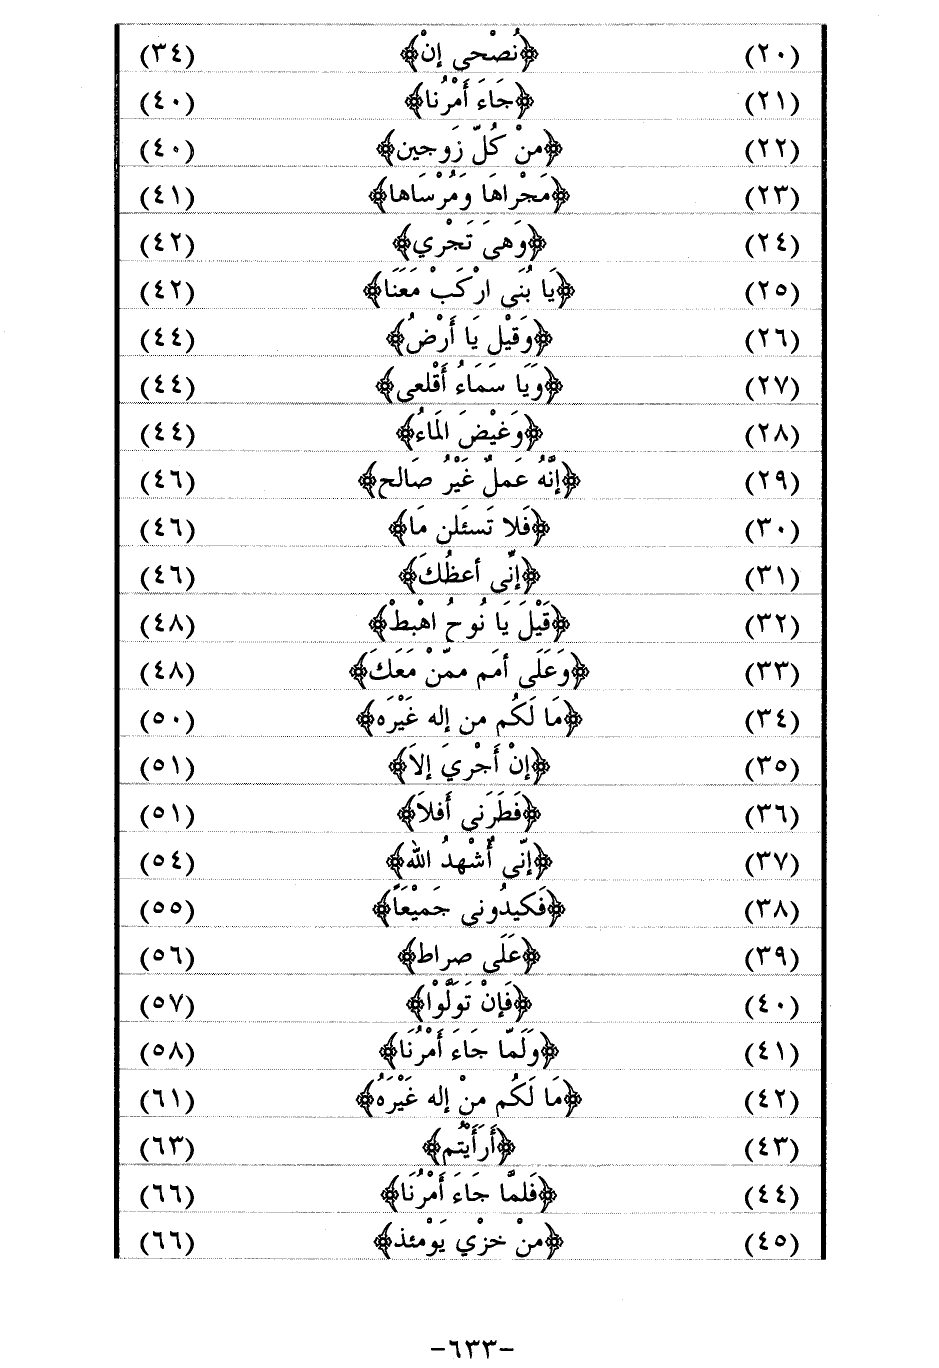 (٢٠) ﴿نُصْحي إنْ﴾ (٣٤)
(٢١) ﴿جَاءَ أَمْرُنا﴾ (٤٠)
(٢٢) ﴿منْ كُلّ زَوجين﴾ (٤٠)
(٢٣) ﴿مَجْراهَا ومُرْسَاها﴾ (٤١)
(٢٤) ﴿وَهيَ تَجْري﴾ (٤٢)
(٢٥) ﴿يَا بُنَي ارْكَبْ مَعَنَا﴾ (٤٢)
(٢٦) ﴿وَقيْل يَا أَرْضُ﴾ (٤٤)
(٢٧) ﴿وَيَا سَمَاءُ أَقْلعي﴾ (٤٤)
(٢٨) ﴿وَغيْضَ المَاءُ﴾ (٤٤)
(٢٩) ﴿إنَّهُ عَملٌ غَيْرُ صَالح﴾ (٤٦)
(٣٠) ﴿فَلا تَسئَلن مَا﴾ (٤٦)
(٣١) ﴿إنِّي أعظُكَ﴾ (٤٦)
(٣٢) ﴿قَيْلَ يَا نُوحُ اهْبطْ﴾ (٤٨)
(٣٣) ﴿وَعَلَى أمَم ممّنْ مَعَكَ﴾ (٤٨)
(٣٤) ﴿مَا لَكُم من إله غَيْرَه﴾ (٥٠)
(٣٥) ﴿إنْ أَجْريَ إلاَ﴾ (٥١)
(٣٦) ﴿فَطَرَني أَفلاَ﴾ (٥١)
(٣٧) ﴿إنّي أُشْهدُ الله﴾ (٥٤)
(٣٨) ﴿فَكيدُوني جَميْعَاً﴾ (٥٥)
(٣٩) ﴿عَلَى صراط﴾ (٥٦)
(٤٠) ﴿فَإنْ تَوَلَّوْا﴾ (٥٧)
(٤١) ﴿وَلَمّا جَاءَ أَمْرُنَا﴾ (٥٨)
(٤٢) ﴿مَا لَكُم منْ إله غَيْرَهُ﴾ (٦١)
(٤٣) ﴿أَرَأَيْتُم﴾ (٦٣)
(٤٤) ﴿فَلمَّا جَاءَ أَمْرُنَا﴾ (٦٦)
(٤٥) ﴿منْ خزْي يَوْمئذ﴾ (٦٦)
-٦٣٣-